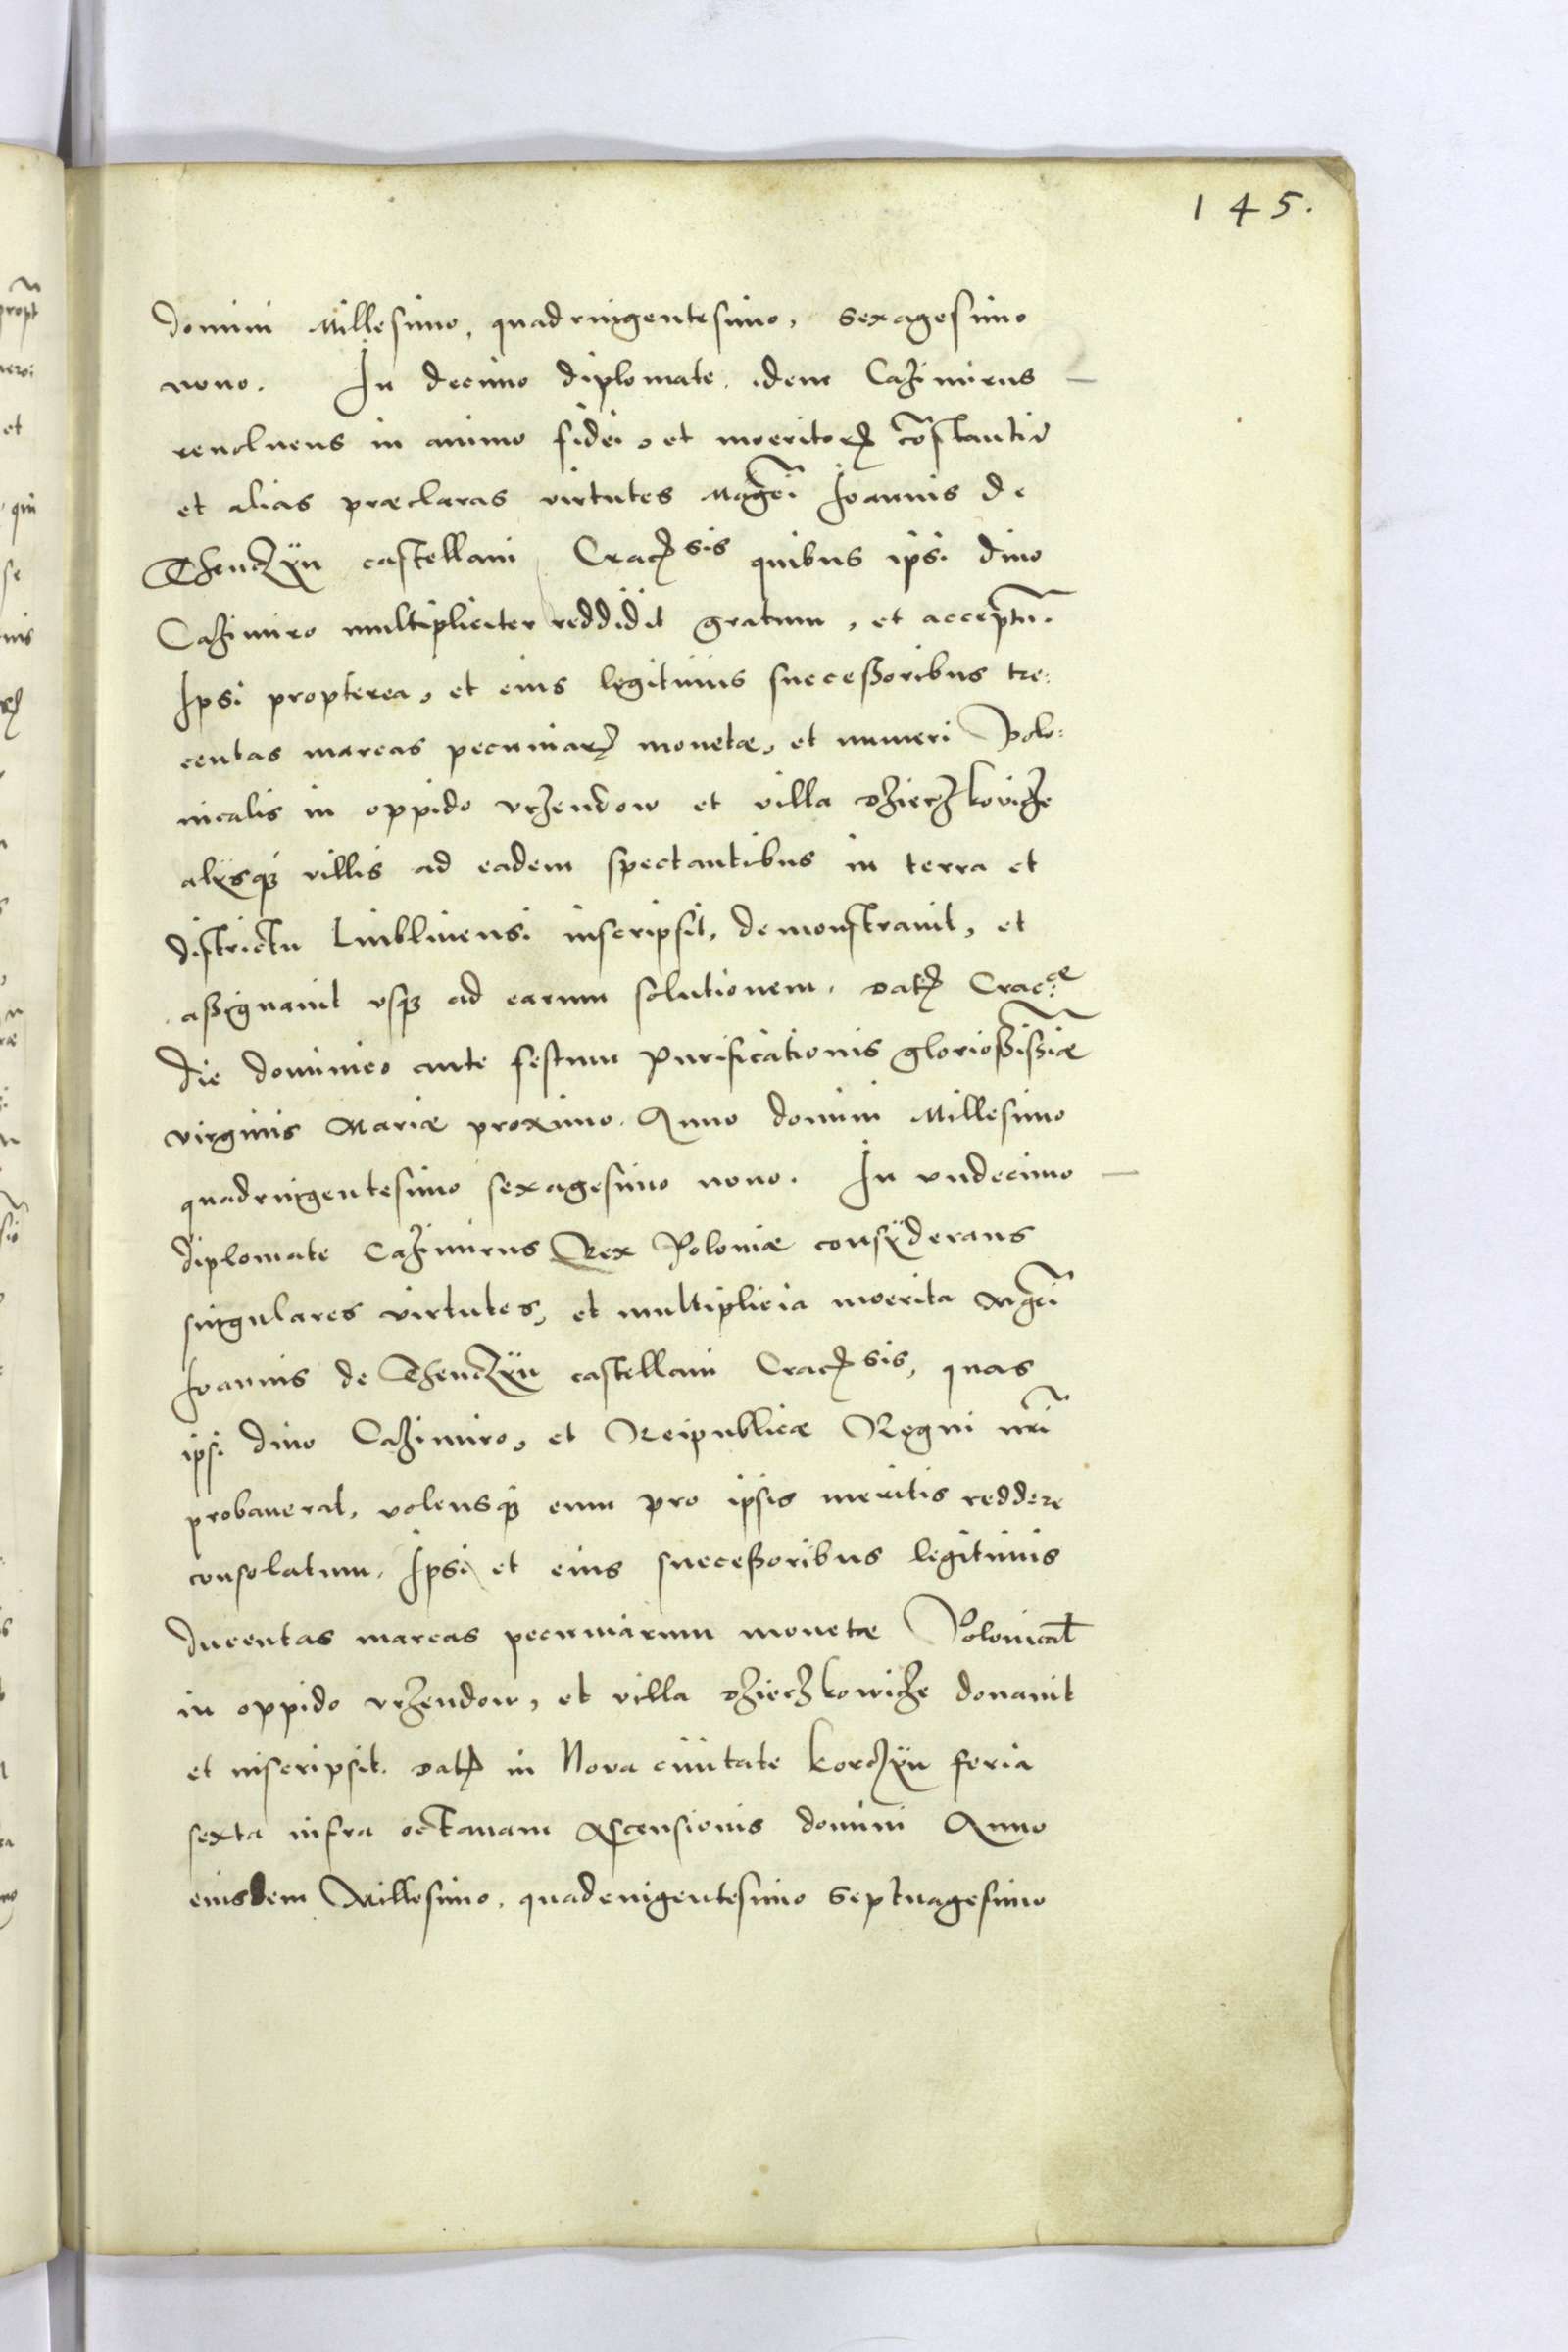 145.
domini Millesimo, quadringentesimo, sexagesimo
nono. In decimo diplomate idem Cazimirus
reuoluens in animo fidei, et moeritoꝝ cõstantiã
et alias præclaras virtutes Mag̃ci Joannis de
Thenczÿn castellani Cracꝭsis quibus ipsi diuo
Cazimiro multipliciter reddidit gratum, et acceptũ.
Ipsi propterea, et eius legitimis succeßoribus tre:
centas marcas pecuniarꝝ monetæ, et numeri Polo:
nicalis in oppido vrzendow et villa dzierzkovicze
alÿsqꝫ villis ad eadem spectantibus in terra et
districtu Lublinensi inscripsit, demonstrauit, et
aßignauit vsqꝫ ad earum solutionem. datꝭ Crac:æ
die dominico ante festum purificationis glorioßißiæ
virginis Mariæ proximo. Anno domini Millesimo
quadringentesimo sexagesimo nono. In vndecimo
diplomate Cazimirus Rex Poloniæ consÿderans
singulares virtutes, et multiplicia moerita Mg̃ci
Joannis de Thenczÿn castellani Cracꝭsis, quas
ipsi diuo Cazimiro, et Reipublicæ Regni nr̃i
probauerat, volensqꝫ eum pro ipsis meritis reddere
consolatum. Ipsi et eius succeßoribus legitimis
ducentas marcas pecuniarum monetæ Polonical
in oppido vrzendow, et villa dzierzkowicze donauit
et inscripsit. datꝭ in Nova ciuitate korczÿn feria
sexta infra octauam Ascensionis domini Anno
eiusdem Millesimo, quadenigentesimo septuagesimo